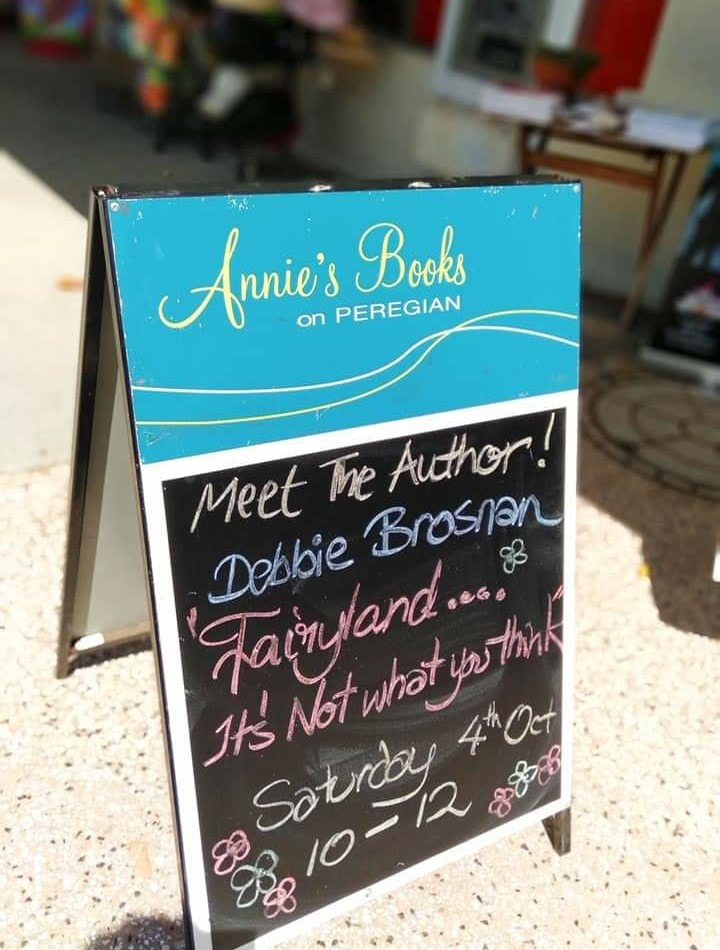 Annie's Books
on PEREGIAN
Meet The Author!
Debbie Brosnan
"Fairyland....
It's Not what you think"
Saturday 4th Oct
10-12